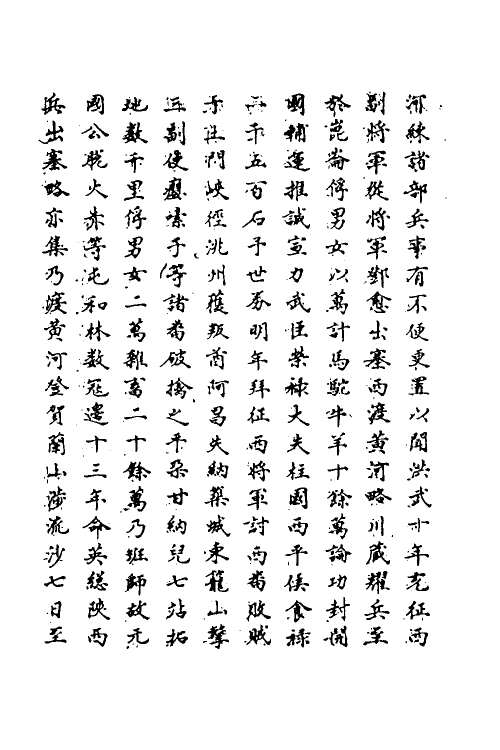 河練諸部兵事有不便更置以聞洪武十年充征西
副將軍從將軍鄧愈出塞西渡黃河略川蔵耀兵至
於崑崙俘男女以萬計馬駝牛羊十餘萬論功封開
國輔運推誠宣力武臣榮祿大夫柱國西平侯食祿
二千五百石予世券明年拜征西將軍討西畨敗賊
于土門峽徑洮州獲叛酋阿昌失納築城東籠山擊
三副使癭嗉子等諸畨破擒之平朶甘納兒七站拓
地數千里俘男女二萬雜畜二十餘萬乃班師故元
國公脫火赤等屯和林數冦邊十三年命英緫陝西
兵出塞略亦集乃渡黃河登賀蘭山涉流沙七日至